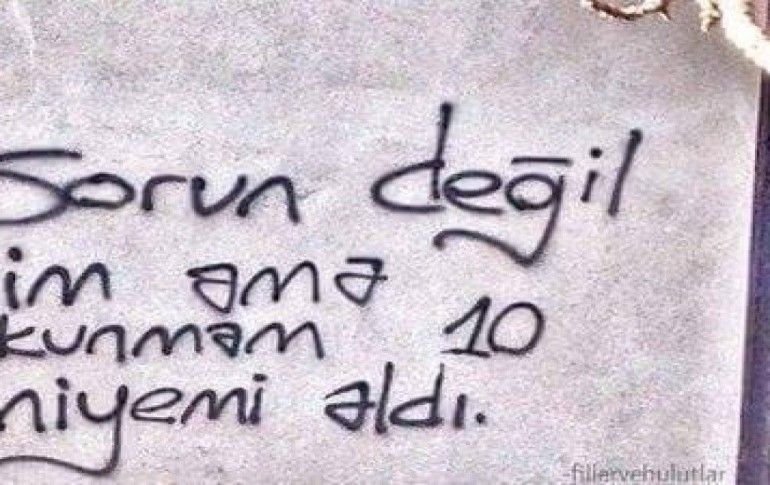 Sorun değil
im ama
kunmam 10
niyemi aldı.
-fillervebulutlar